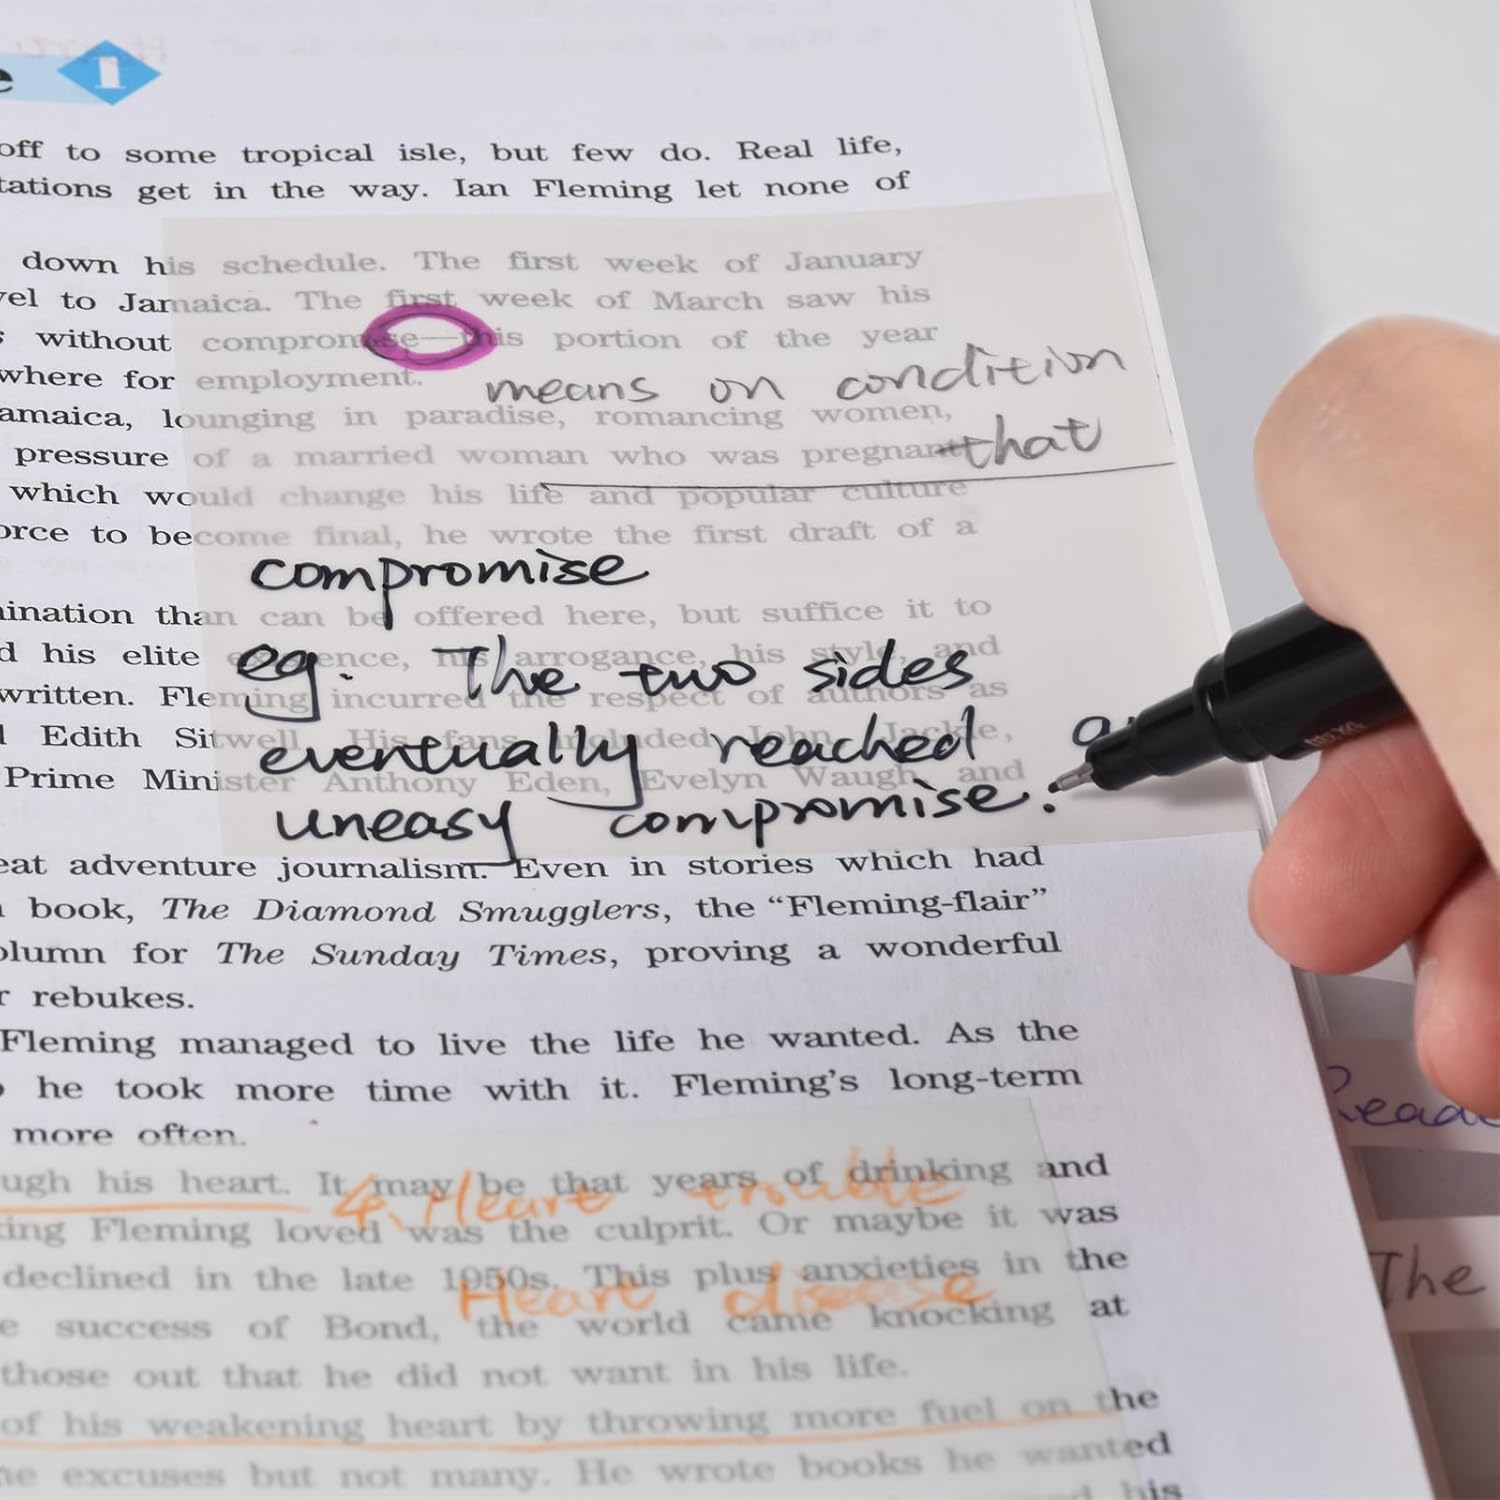 1
off to some tropical isle, but few do. Real life,
tations get in the way. Ian Fleming let none of
down his schedule. The first week of January
vel to Jamaica. The first week of March saw his
s without compromise—this portion of the year
where for employment.
means on condition
amaica, lounging in paradise, romancing women,
that
pressure of a married woman who was pregnant
which would change his life and popular culture
orce to become final, he wrote the first draft of a
compromise
nination than can be offered here, but suffice it to
d his elite existence, his arrogance, his style, and
eg. The two sides
written. Fleming incurred the respect of authors as
d Edith Sitwell. His fans included John Jackle,
eventually reached a
Prime Minister Anthony Eden, Evelyn Waugh, and
uneasy compromise.
eat adventure journalism. Even in stories which had
book, The Diamond Smugglers, the “Fleming-flair”
olumn for The Sunday Times, proving a wonderful
r rebukes.
Fleming managed to live the life he wanted. As the
he took more time with it. Fleming's long-term
more often.
ugh his heart. It may be that years of drinking and
4. Heart trouble
king Fleming loved was the culprit. Or maybe it was
declined in the late 1950s. This plus anxieties in the
Heart disease
e success of Bond, the world came knocking at
those out that he did not want in his life.
of his weakening heart by throwing more fuel on the
he excuses but not many. He wrote books he wanted
his
Read
The